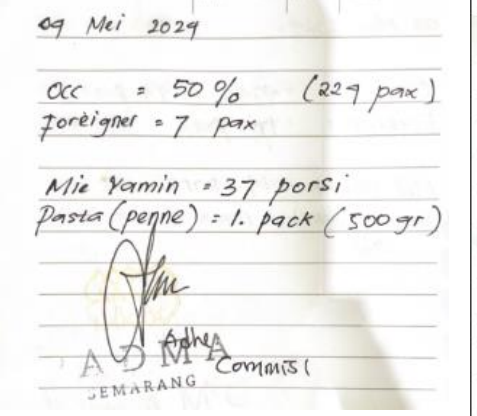 09 Mei 2024
Occ = 50 % (224 pax)
Foreigner = 7 pax
Mie Yamin = 37 porsi
Pasta (penne) = 1. pack (500 gr)
Adhe
ADMA
Commis 1
SEMARANG